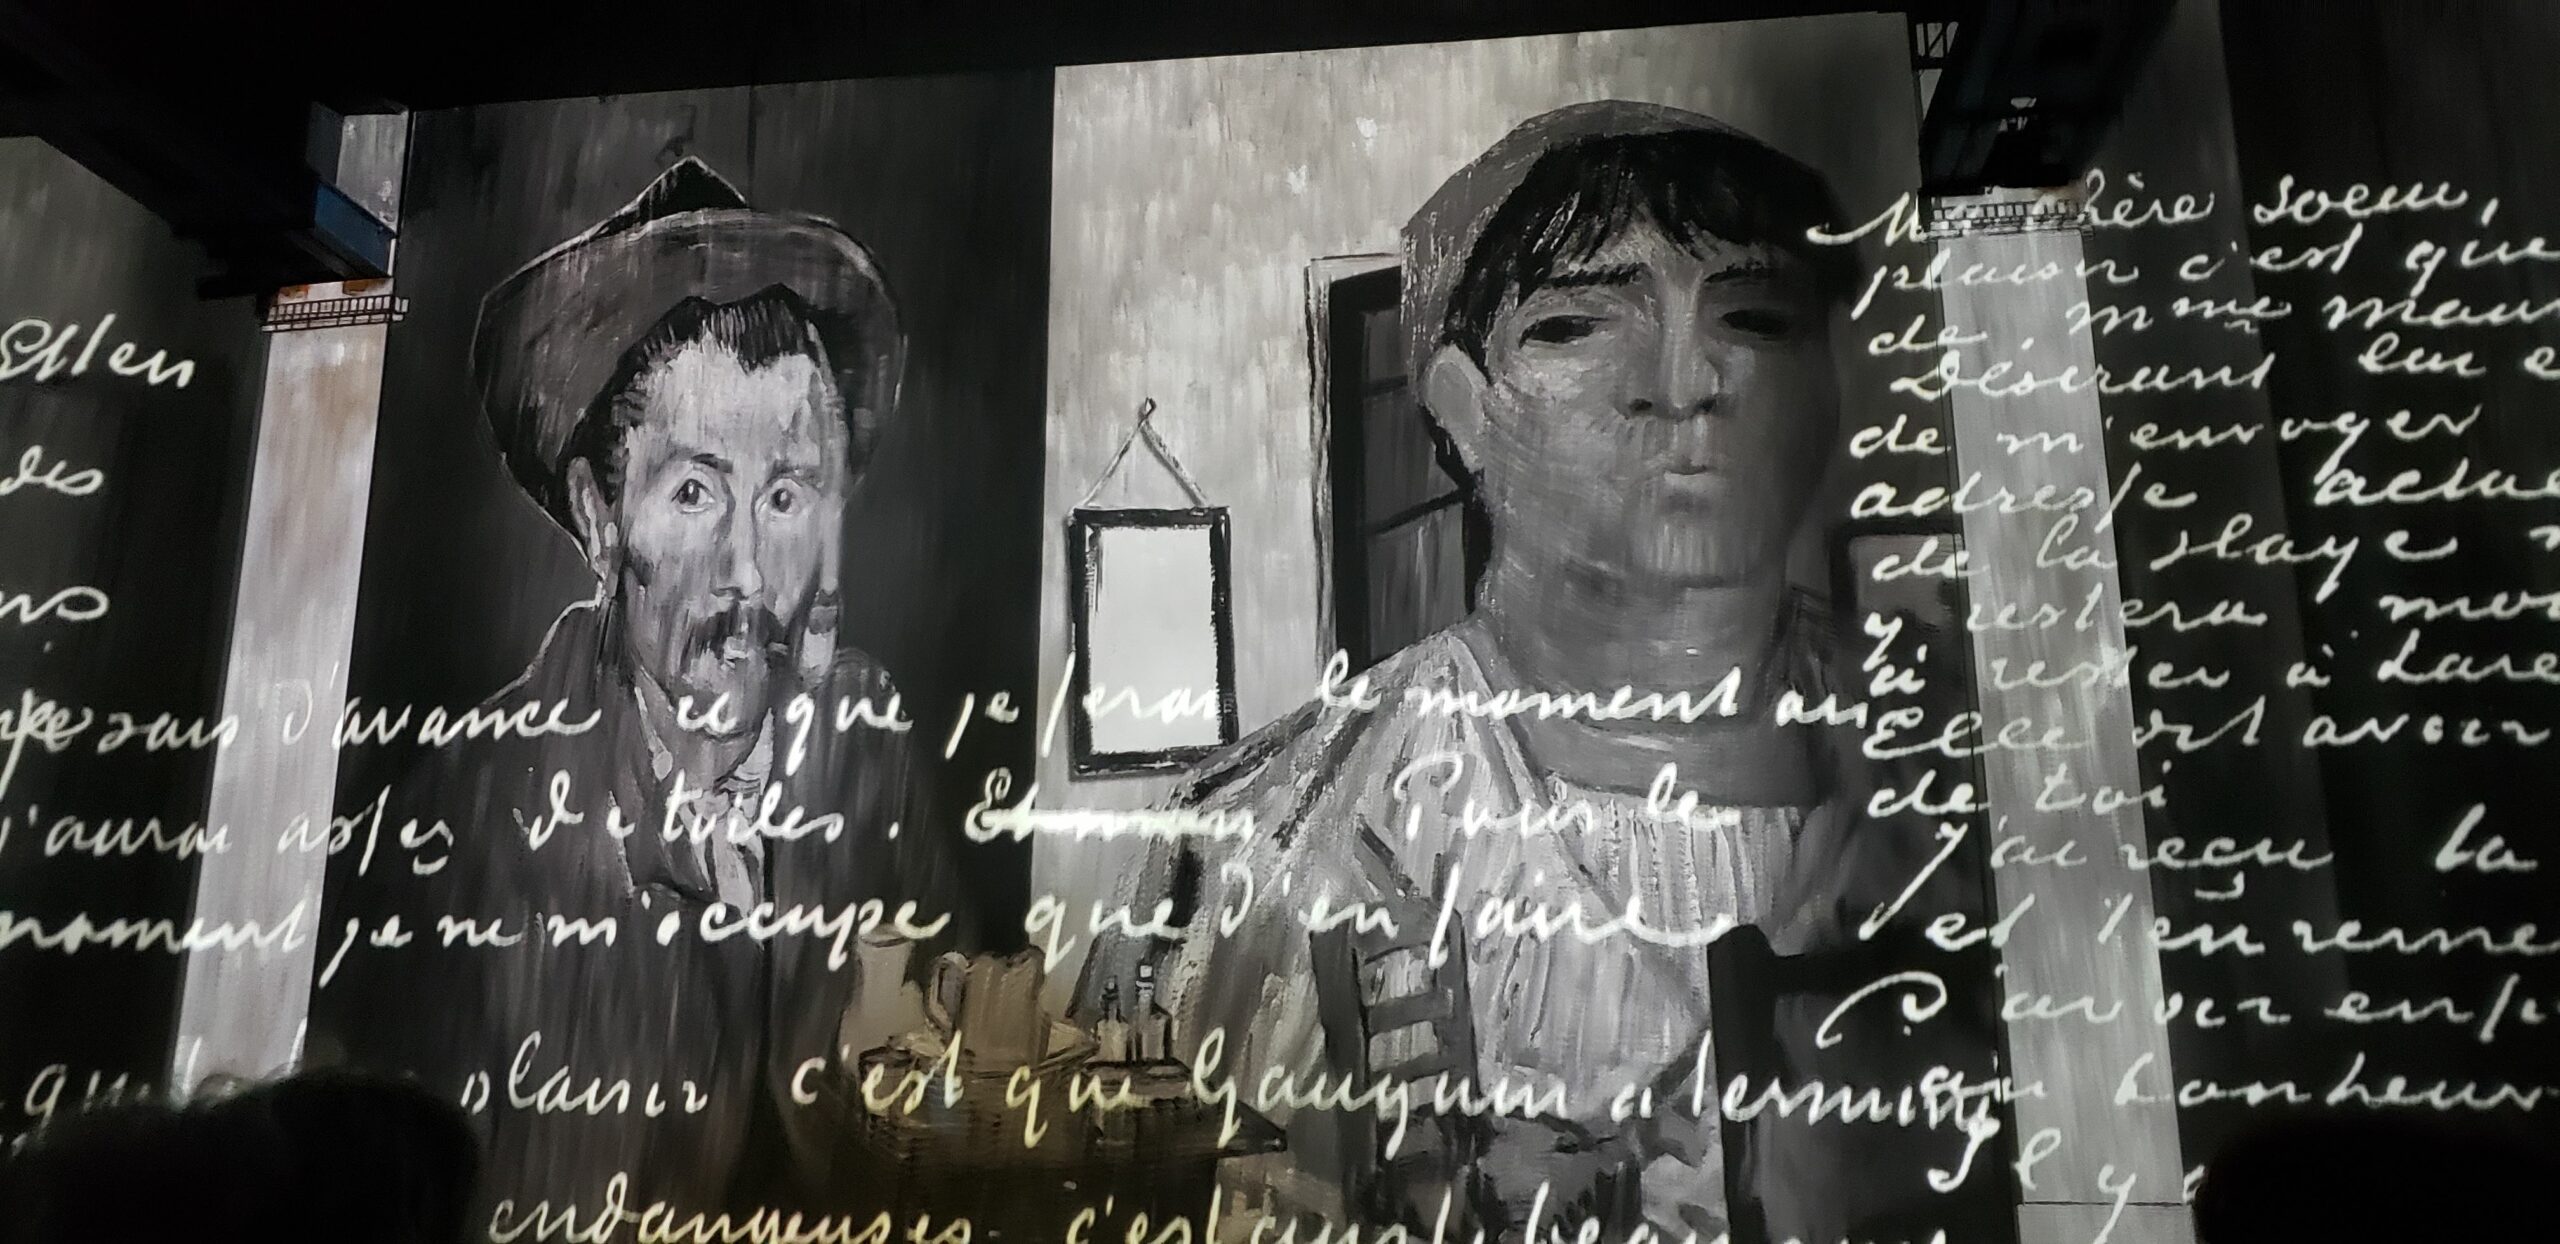 Etten
des
ns
je sais d'avance ce que je ferai le moment où
j'aurai assez d'étoiles. Pour le
moment je ne m'occupe que d'en faire
plaisir c'est que Gauguin a terminé
endangeuses. c'est aussi beau
Ma chère soeur,
plaisir c'est que
de mme mauv
Désirant lui e
de m'envoyer
adresse actue
de la Haye
y restera mo
à rester à Lare
Elle doit avoir
de toi
J'ai reçu la
et t'en reme
D'avoir enf
au bonheur
Il y a